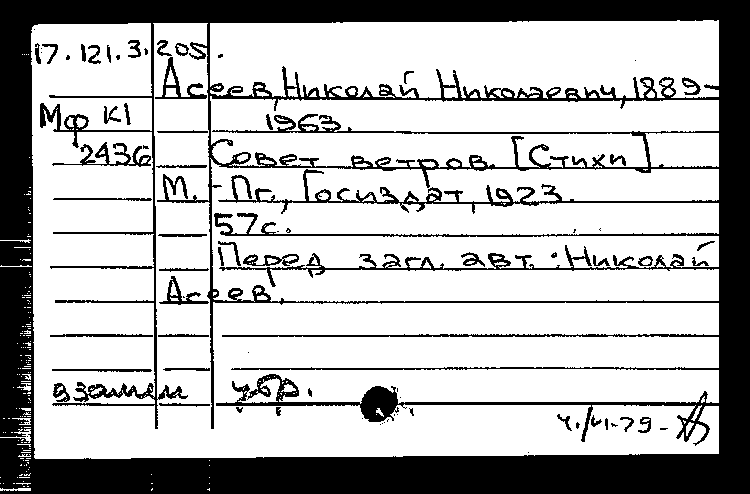 17.121.3.205.
Асеев, Николай Николаевич, 1889-
Мф К1 1963.
2436 Совет ветров. [Стихи].
М.-Пг., Госиздат, 1923.
57с.
Перед загл. авт.: Николай
Асеев.
взамен убр.